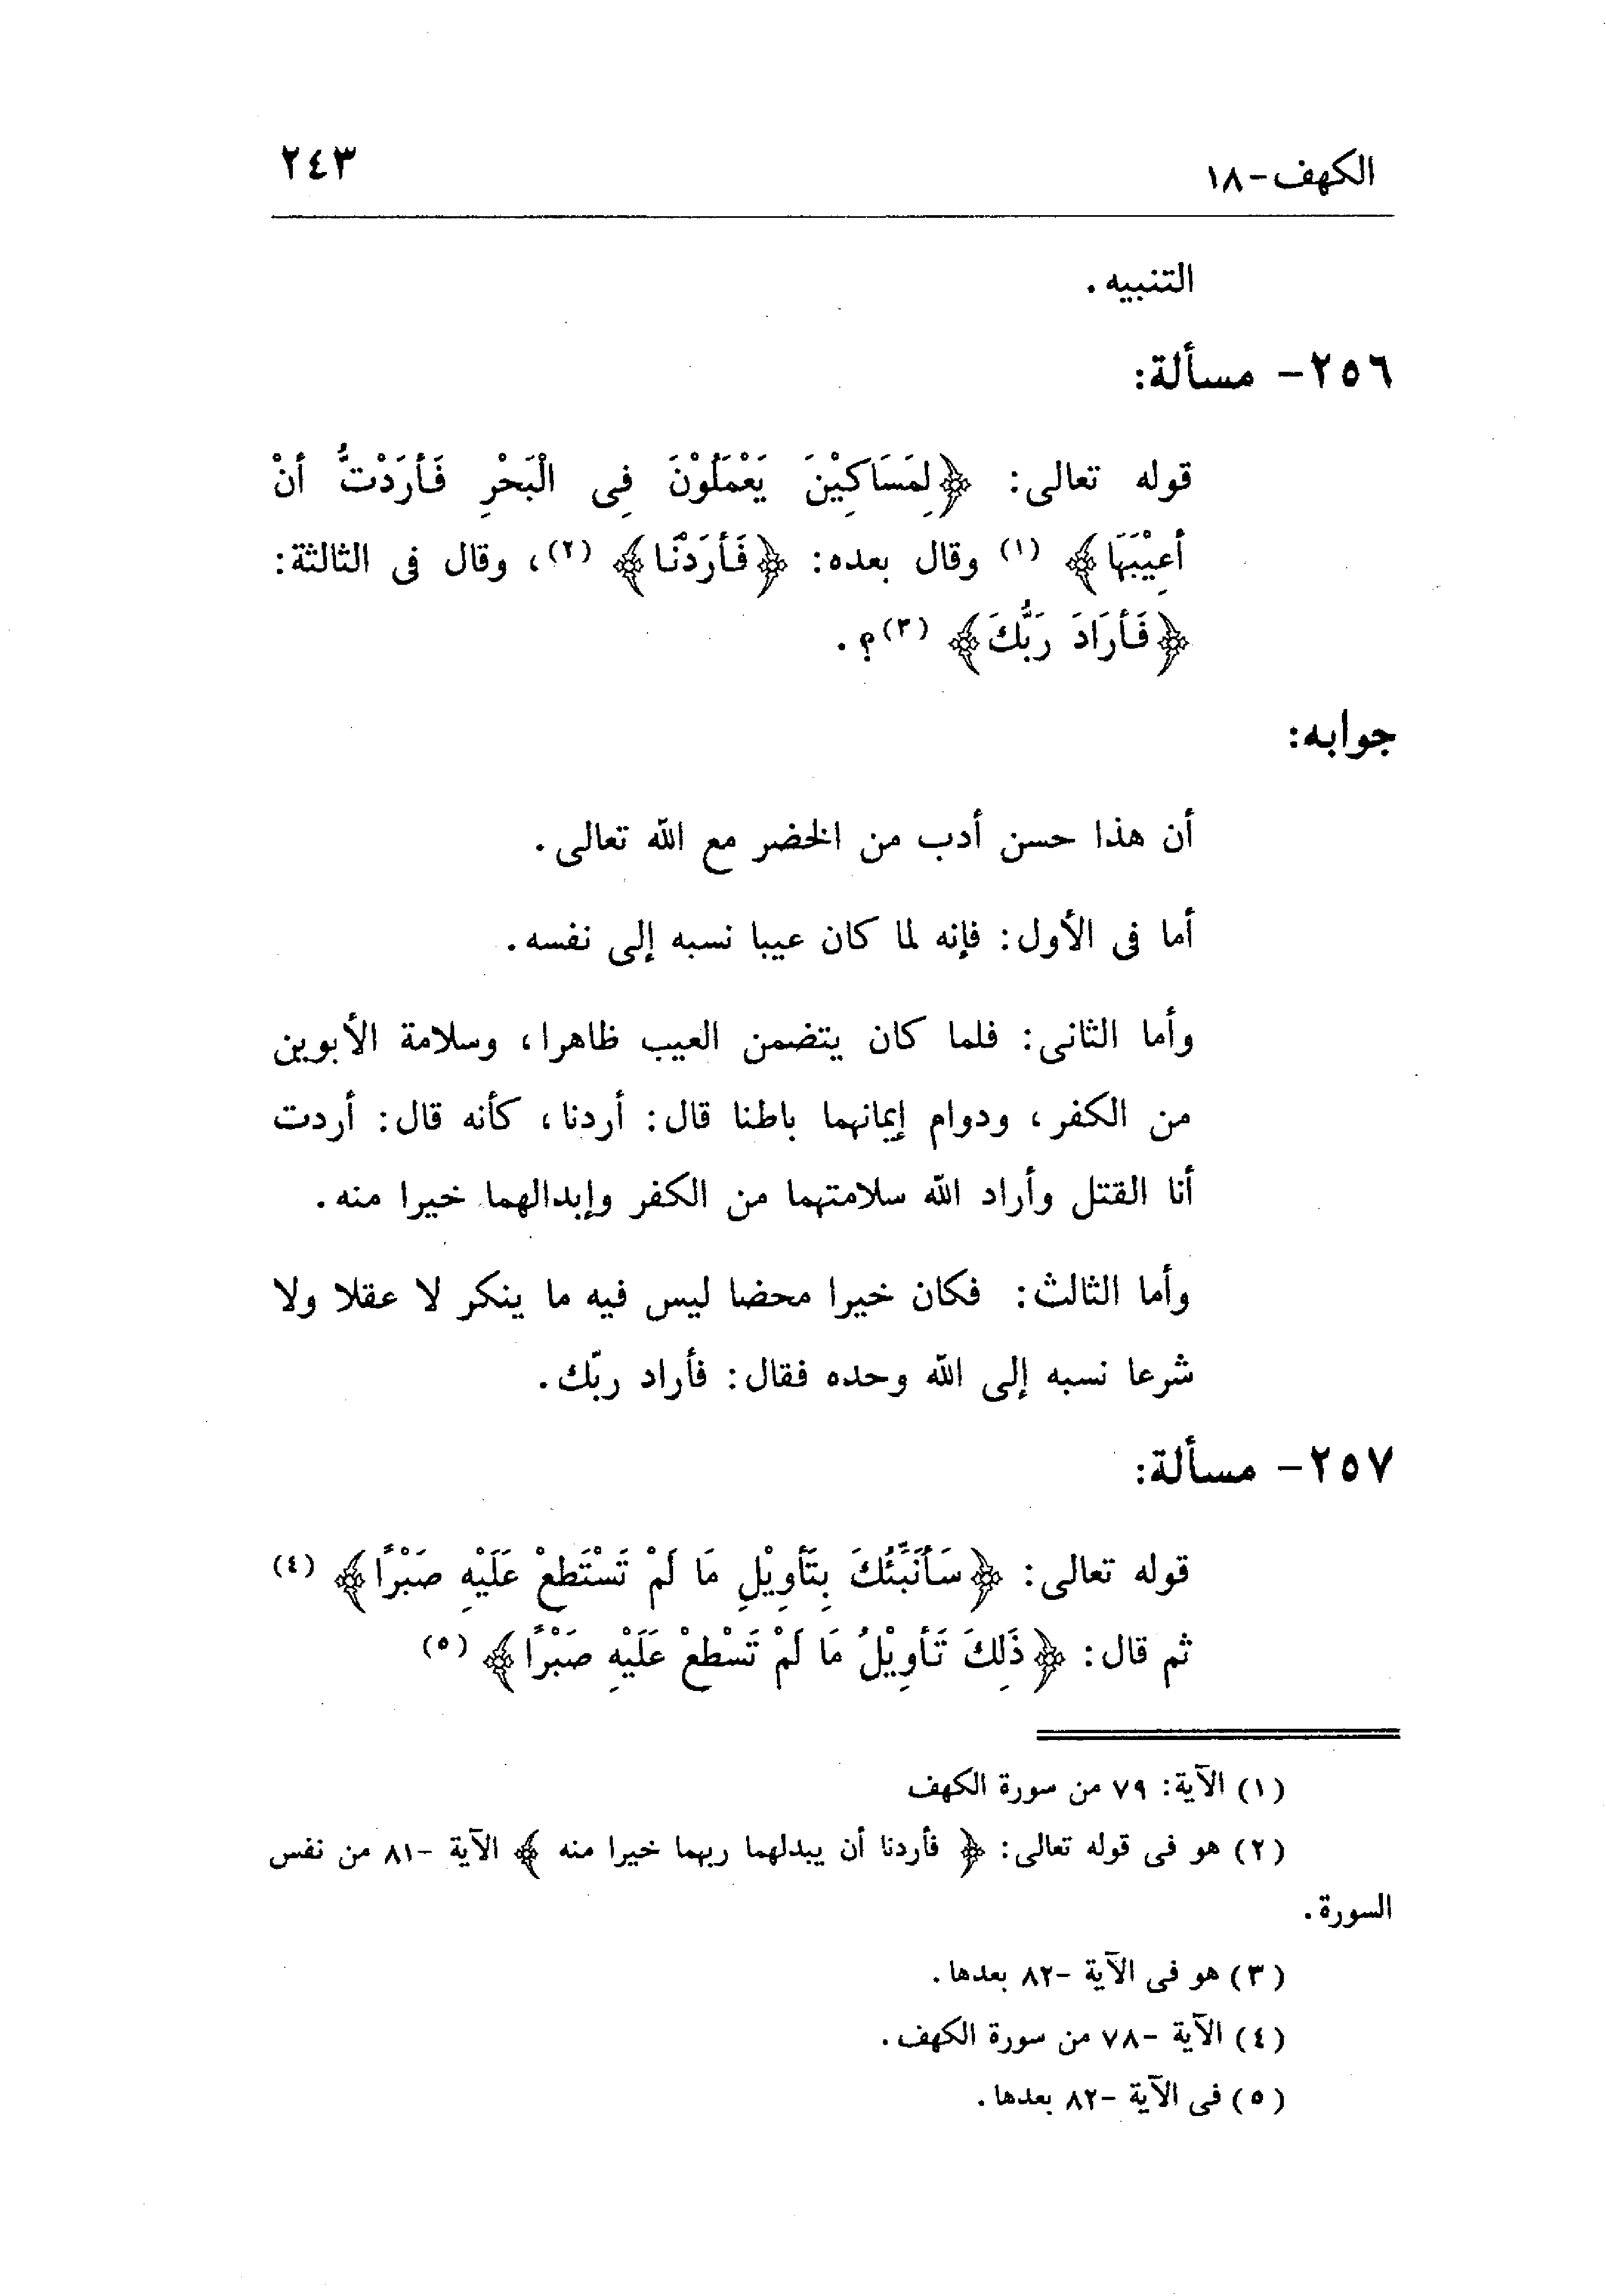 الكهف-١٨ ٢٤٣
التنبيه.
٢٥٦- مسألة:
قوله تعالى: ﴿لِمَسَاكِيْنَ يَعْمَلُوْنَ فِى الْبَحْرِ فَأرَدْتُّ أنْ
أعِيْبَهَا﴾ (١) وقال بعده: ﴿فَأرَدْنَا﴾ (٢)، وقال فى الثالثة:
﴿فَأرَادَ رَبُّكَ﴾ (٣)؟.
جوابه:
أن هذا حسن أدب من الخضر مع الله تعالى.
أما فى الأول: فإنه لما كان عيبا نسبه إلى نفسه.
وأما الثانى: فلما كان يتضمن العيب ظاهرا، وسلامة الأبوين
من الكفر، ودوام إيمانهما باطنا قال: أردنا، كأنه قال: أردت
أنا القتل وأراد الله سلامتهما من الكفر وإبدالهما خيرا منه.
وأما الثالث: فكان خيرا محضا ليس فيه ما ينكر لا عقلا ولا
شرعا نسبه إلى الله وحده فقال: فأراد ربّك.
٢٥٧- مسألة:
قوله تعالى: ﴿سَأنَبِّئُكَ بِتَأوِيْلِ مَا لَمْ تَسْتَطِعْ عَلَيْهِ صَبْرًا﴾ (٤)
ثم قال: ﴿ذَلِكَ تَأوِيْلُ مَا لَمْ تَسْطِعْ عَلَيْهِ صَبْرًا﴾ (٥)
(١) الآية: ٧٩ من سورة الكهف
(٢) هو فى قوله تعالى: ﴿ فأردنا أن يبدلهما ربهما خيرا منه ﴾ الآية -٨١ من نفس
السورة.
(٣) هو فى الآية -٨٢ بعدها.
(٤) الآية -٧٨ من سورة الكهف.
(٥) فى الآية -٨٢ بعدها.